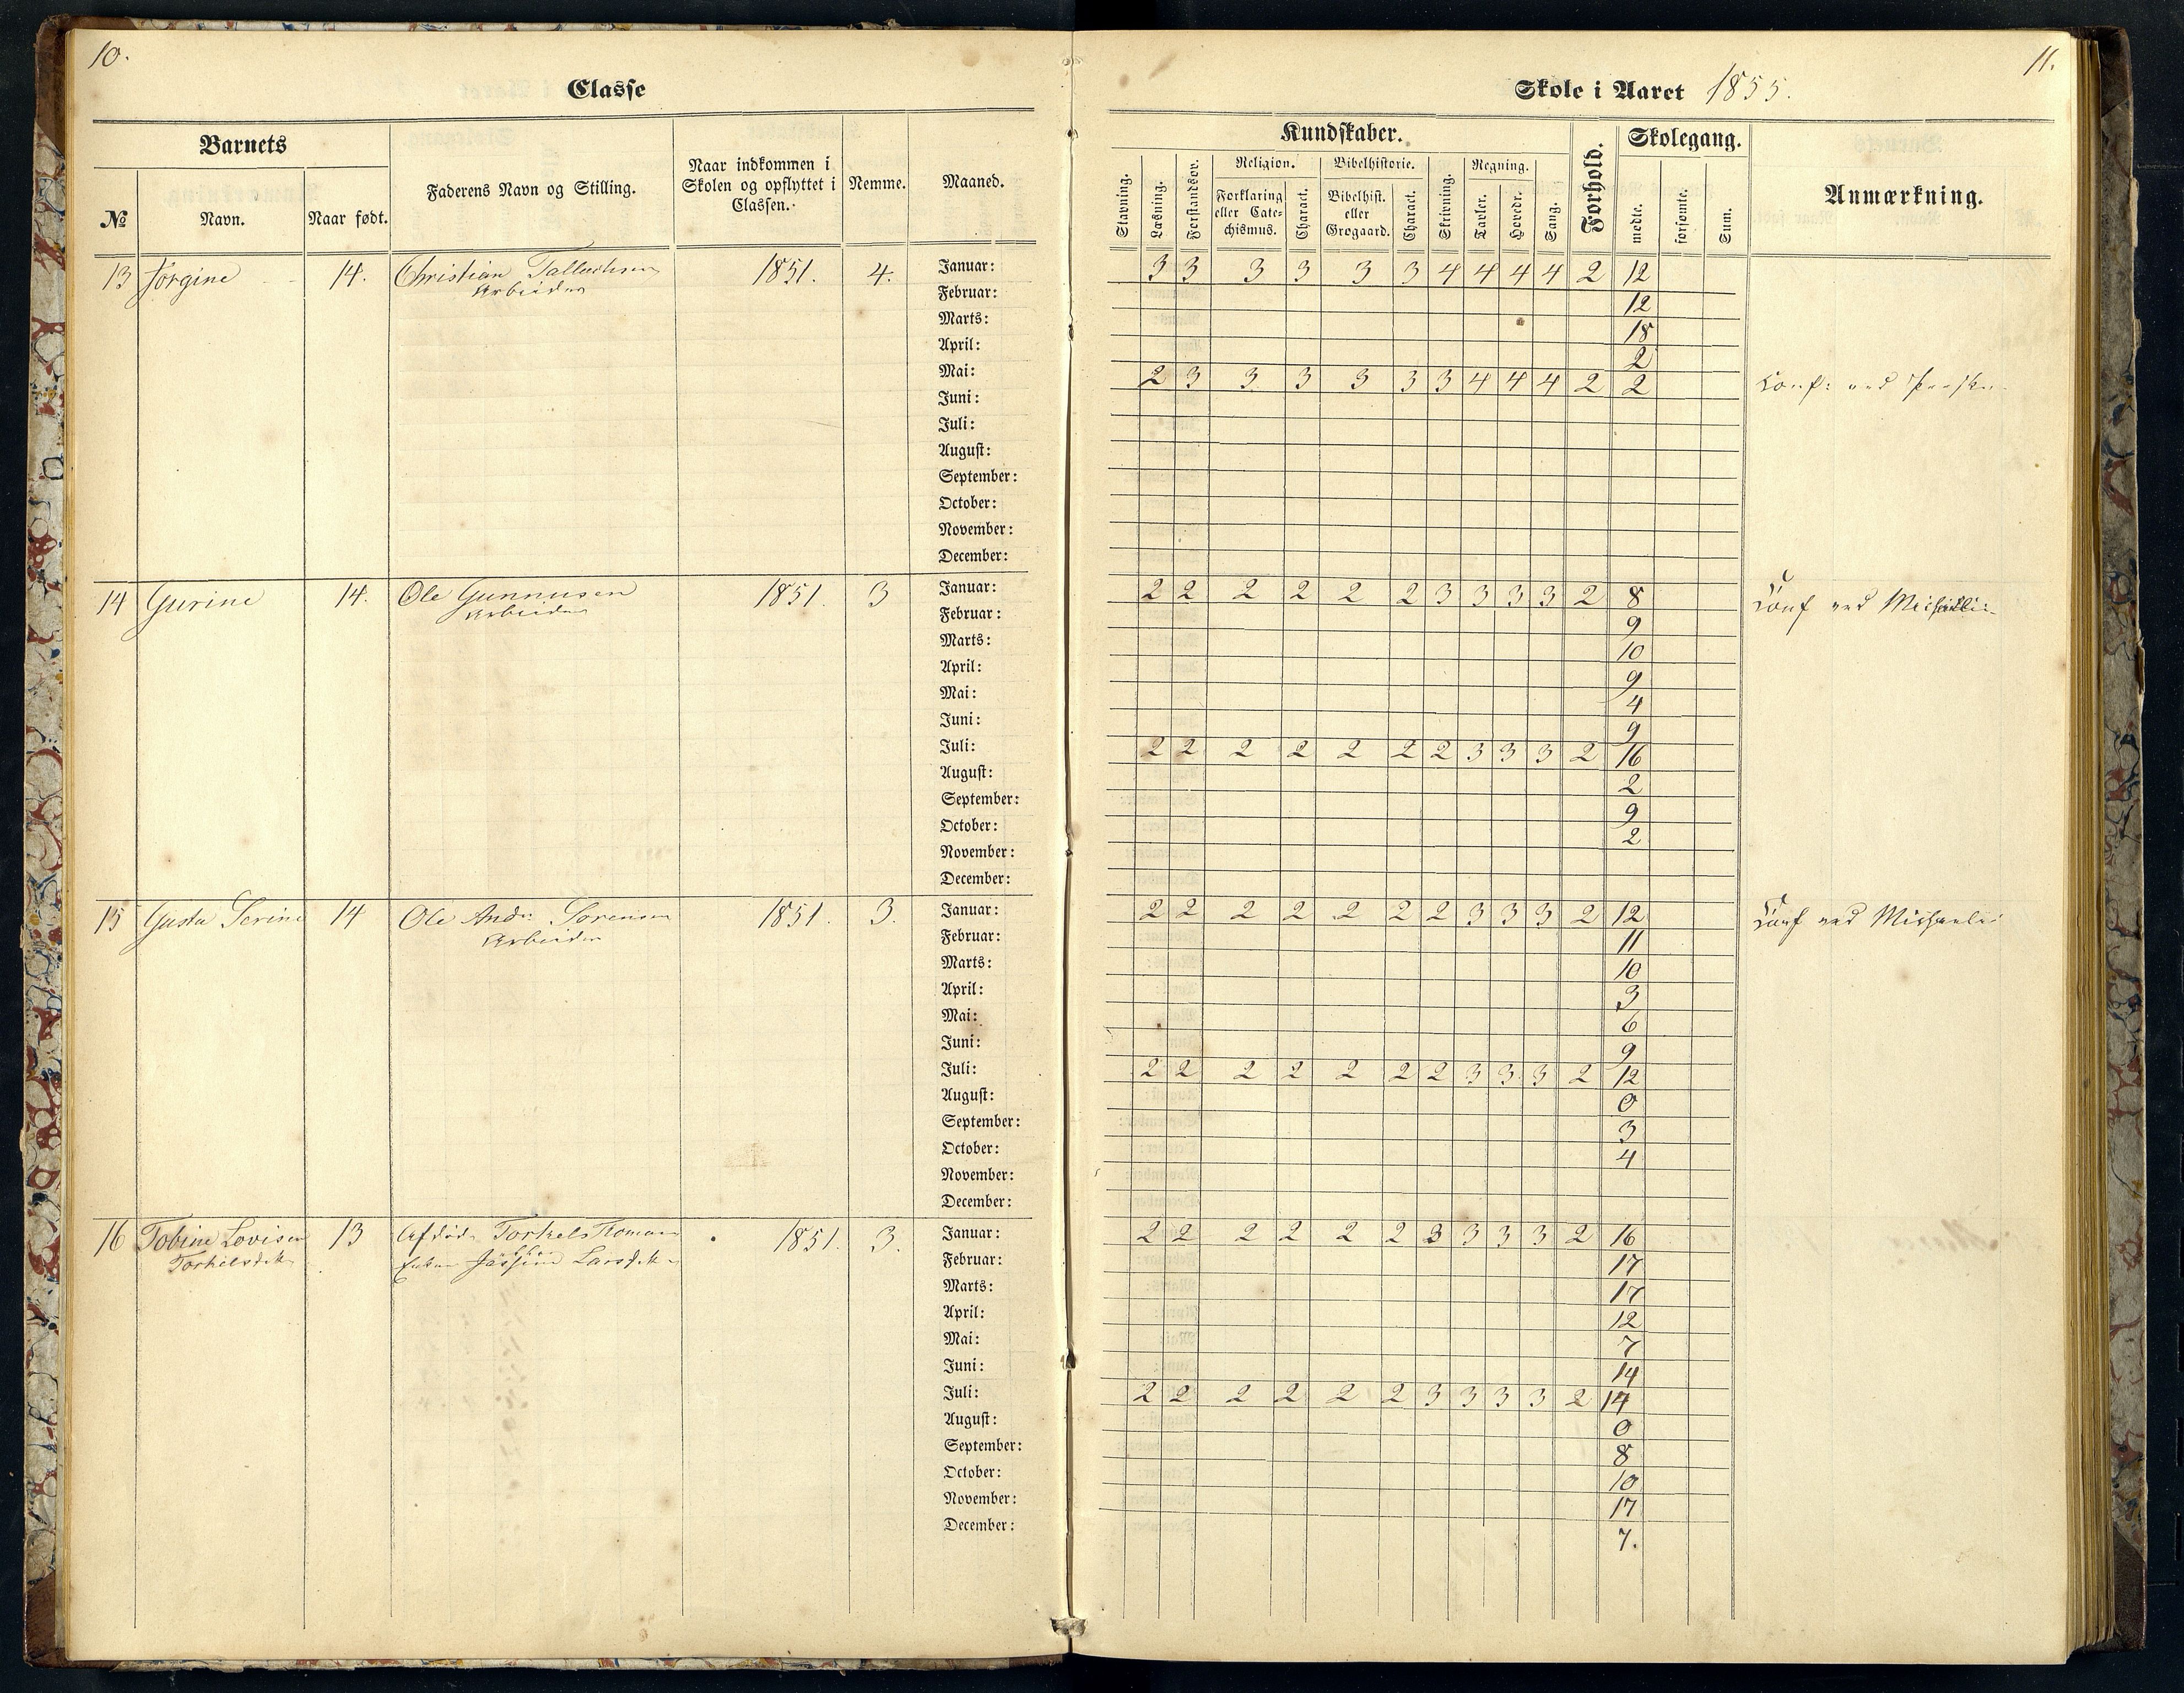 10.
Classe
Barnets
№
Navn.
Naar født.
Faderens Navn og Stilling.
Naar indkommen i Skolen og opflyttet i Classen.
Nemme.
Maaned.
11.
Skole i Aaret 1855.
Kundskaber.
Stavning.
Læsning.
Forstandsøv.
Religion.
Forklaring eller Cate= chismus.
Charact.
Bibelhistorie.
Bibelhist. eller Grogaard.
Charact.
Skrivning.
Regning.
Tavler.
Hovedr.
Sang.
Forhold.
Skolegang.
mødte.
forsømte.
Sum.
Anmærkning.
13 Jorgine 14. Christian 1851. 4. Januar: 3 3 3 3 3 3 4 4 4 4 2 12
Arbeider
Februar: 12
Marts: 18
April: 2
Mai: 2 3 3 3 3 3 3 4 4 4 2 2 Conf: ved
Juni:
Juli:
August:
September:
October:
November:
December:
14 Gurine 14. Ole Gunnusen 1851. 3 Januar: 2 2 2 2 2 2 3 3 3 3 2 8 Conf ved Michaeli:
Arbeider
Februar: 9
Marts: 10
April: 9
Mai: 4
Juni: 9
Juli: 2 2 2 2 2 2 2 3 3 3 2 16
August: 2
September: 9
October: 2
November:
December:
15 Gusta Serine 14 Ole Andr: Sorensen 1851. 3. Januar: 2 2 2 2 2 2 2 3 3 3 2 12 Conf ved Michaeli:
Arbeider
Februar: 11
Marts: 10
April: 3
Mai: 6
Juni: 9
Juli: 2 2 2 2 2 2 2 3 3 3 2 12
August: 0
September: 3
October: 4
November:
December:
16 Tobine Lovise 13 Afdøde Torkels 1851. 3. Januar: 2 2 2 2 2 2 3 3 3 3 2 16
Torkelsdtr Enken Larsdtr
Februar: 17
Marts: 17
April: 12
Mai: 7
Juni: 14
Juli: 2 2 2 2 2 2 3 3 3 3 2 14
August: 0
September: 8
October: 10
November: 17
December: 7.